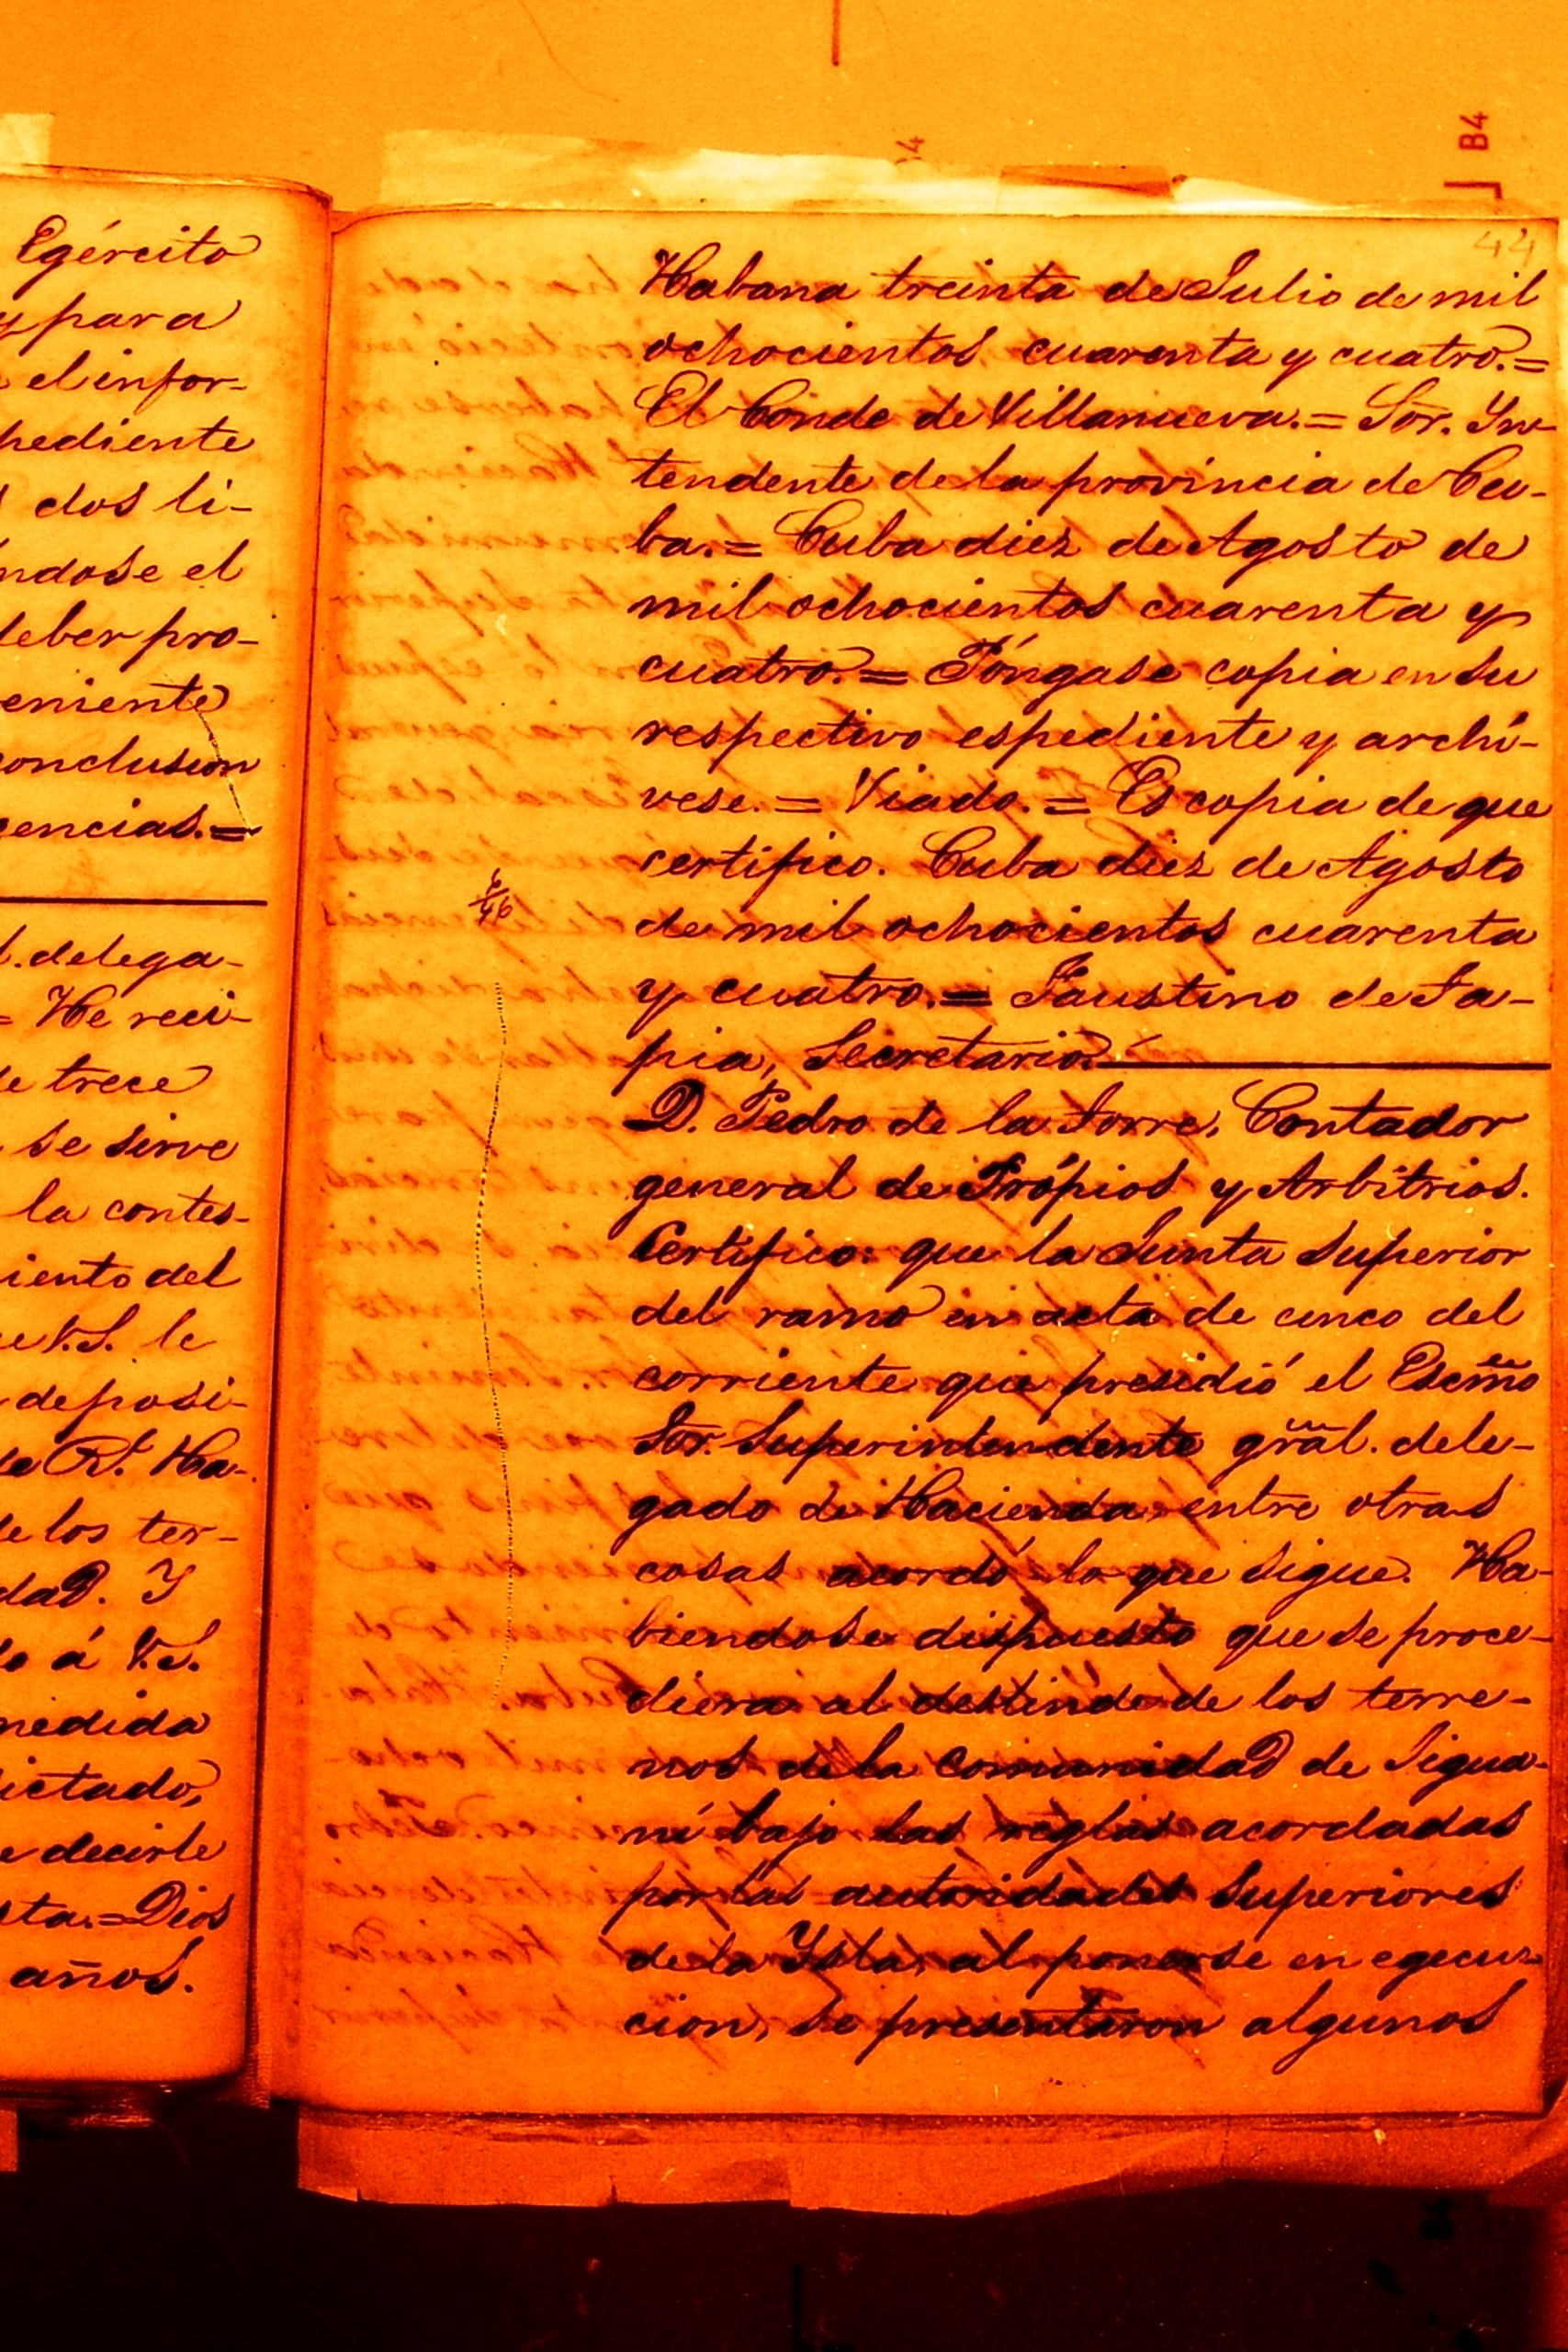 Egército
y para
el infor-
pediente
dos li-
ndose el
deber pro-
veniente
conclusion
cencias.=
l. delega-
= He reci-
de trece
se sirve
la contes-
iento del
ue V.S. le
deposi-
de Rl. Ha-
de los ter-
dad. Y
do á V.S.
medida
ictado,
e decirle
sta.=Dios
años.
44
Habana treinta de Julio de mil
ochocientos cuarenta y cuatro.=
El Conde de Villanueva.= Sor. Yn-
tendente de la provincia de Cu-
ba.= Cuba diez de Agosto de
mil ochocientos cuarenta y
cuatro.= Póngase copia en su
respectivo espediente y archi-
vese.= Viado.= Es copia de que
certifico. Cuba diez de Agosto
de mil ochocientos cuarenta
y cuatro.= Faustino de Ta-
pia, Secretario.
D. Pedro de la Torre, Contador
general de Própios y Arbitrios.
Certifico: que la Junta Superior
del ramo en acta de cinco del
corriente que presidió el Escmo
Sor. Superintendente gral. dele-
gado de Hacienda entre otras
cosas acordó lo que sigue. Ha-
biendose dispuesto que se proce-
diera al deslinde de los terre-
nos de la comunidad de Jigua-
ní bajo las reglas acordadas
por las autoridades Superiores
de la Ysla, al ponerse en egecu-
cion, se presentaron algunos
B4